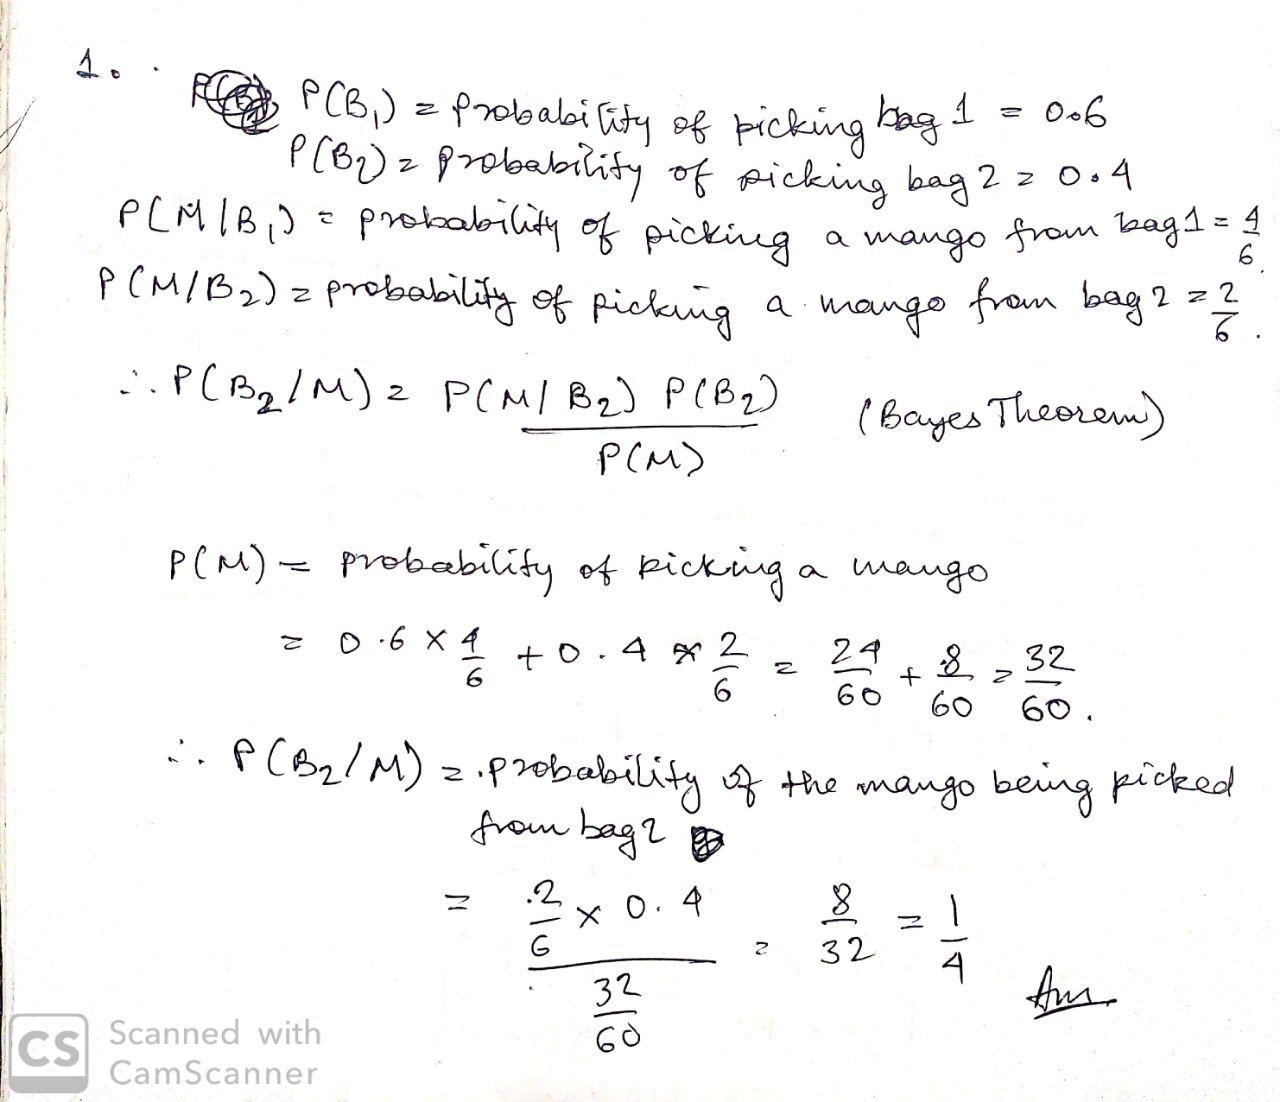 1.
P(B₁) = probability of picking bag 1 = 0.6
P(B₂) = probability of picking bag 2 = 0.4
P(M|B₁) = probability of picking a mango from bag 1 = 4/6
P(M/B₂) = probability of picking a mango from bag 2 = 2/6.
∴ P(B₂/M) = P(M/B₂) P(B₂) / P(M) (Bayes Theorem)
P(M) = probability of picking a mango
= 0.6 × 4/6 + 0.4 × 2/6 = 24/60 + 8/60 = 32/60.
∴ P(B₂/M) = probability of the mango being picked
from bag 2
= (2/6 × 0.4) / (32/60) = 8/32 = 1/4 Ans.
CS Scanned with
CamScanner